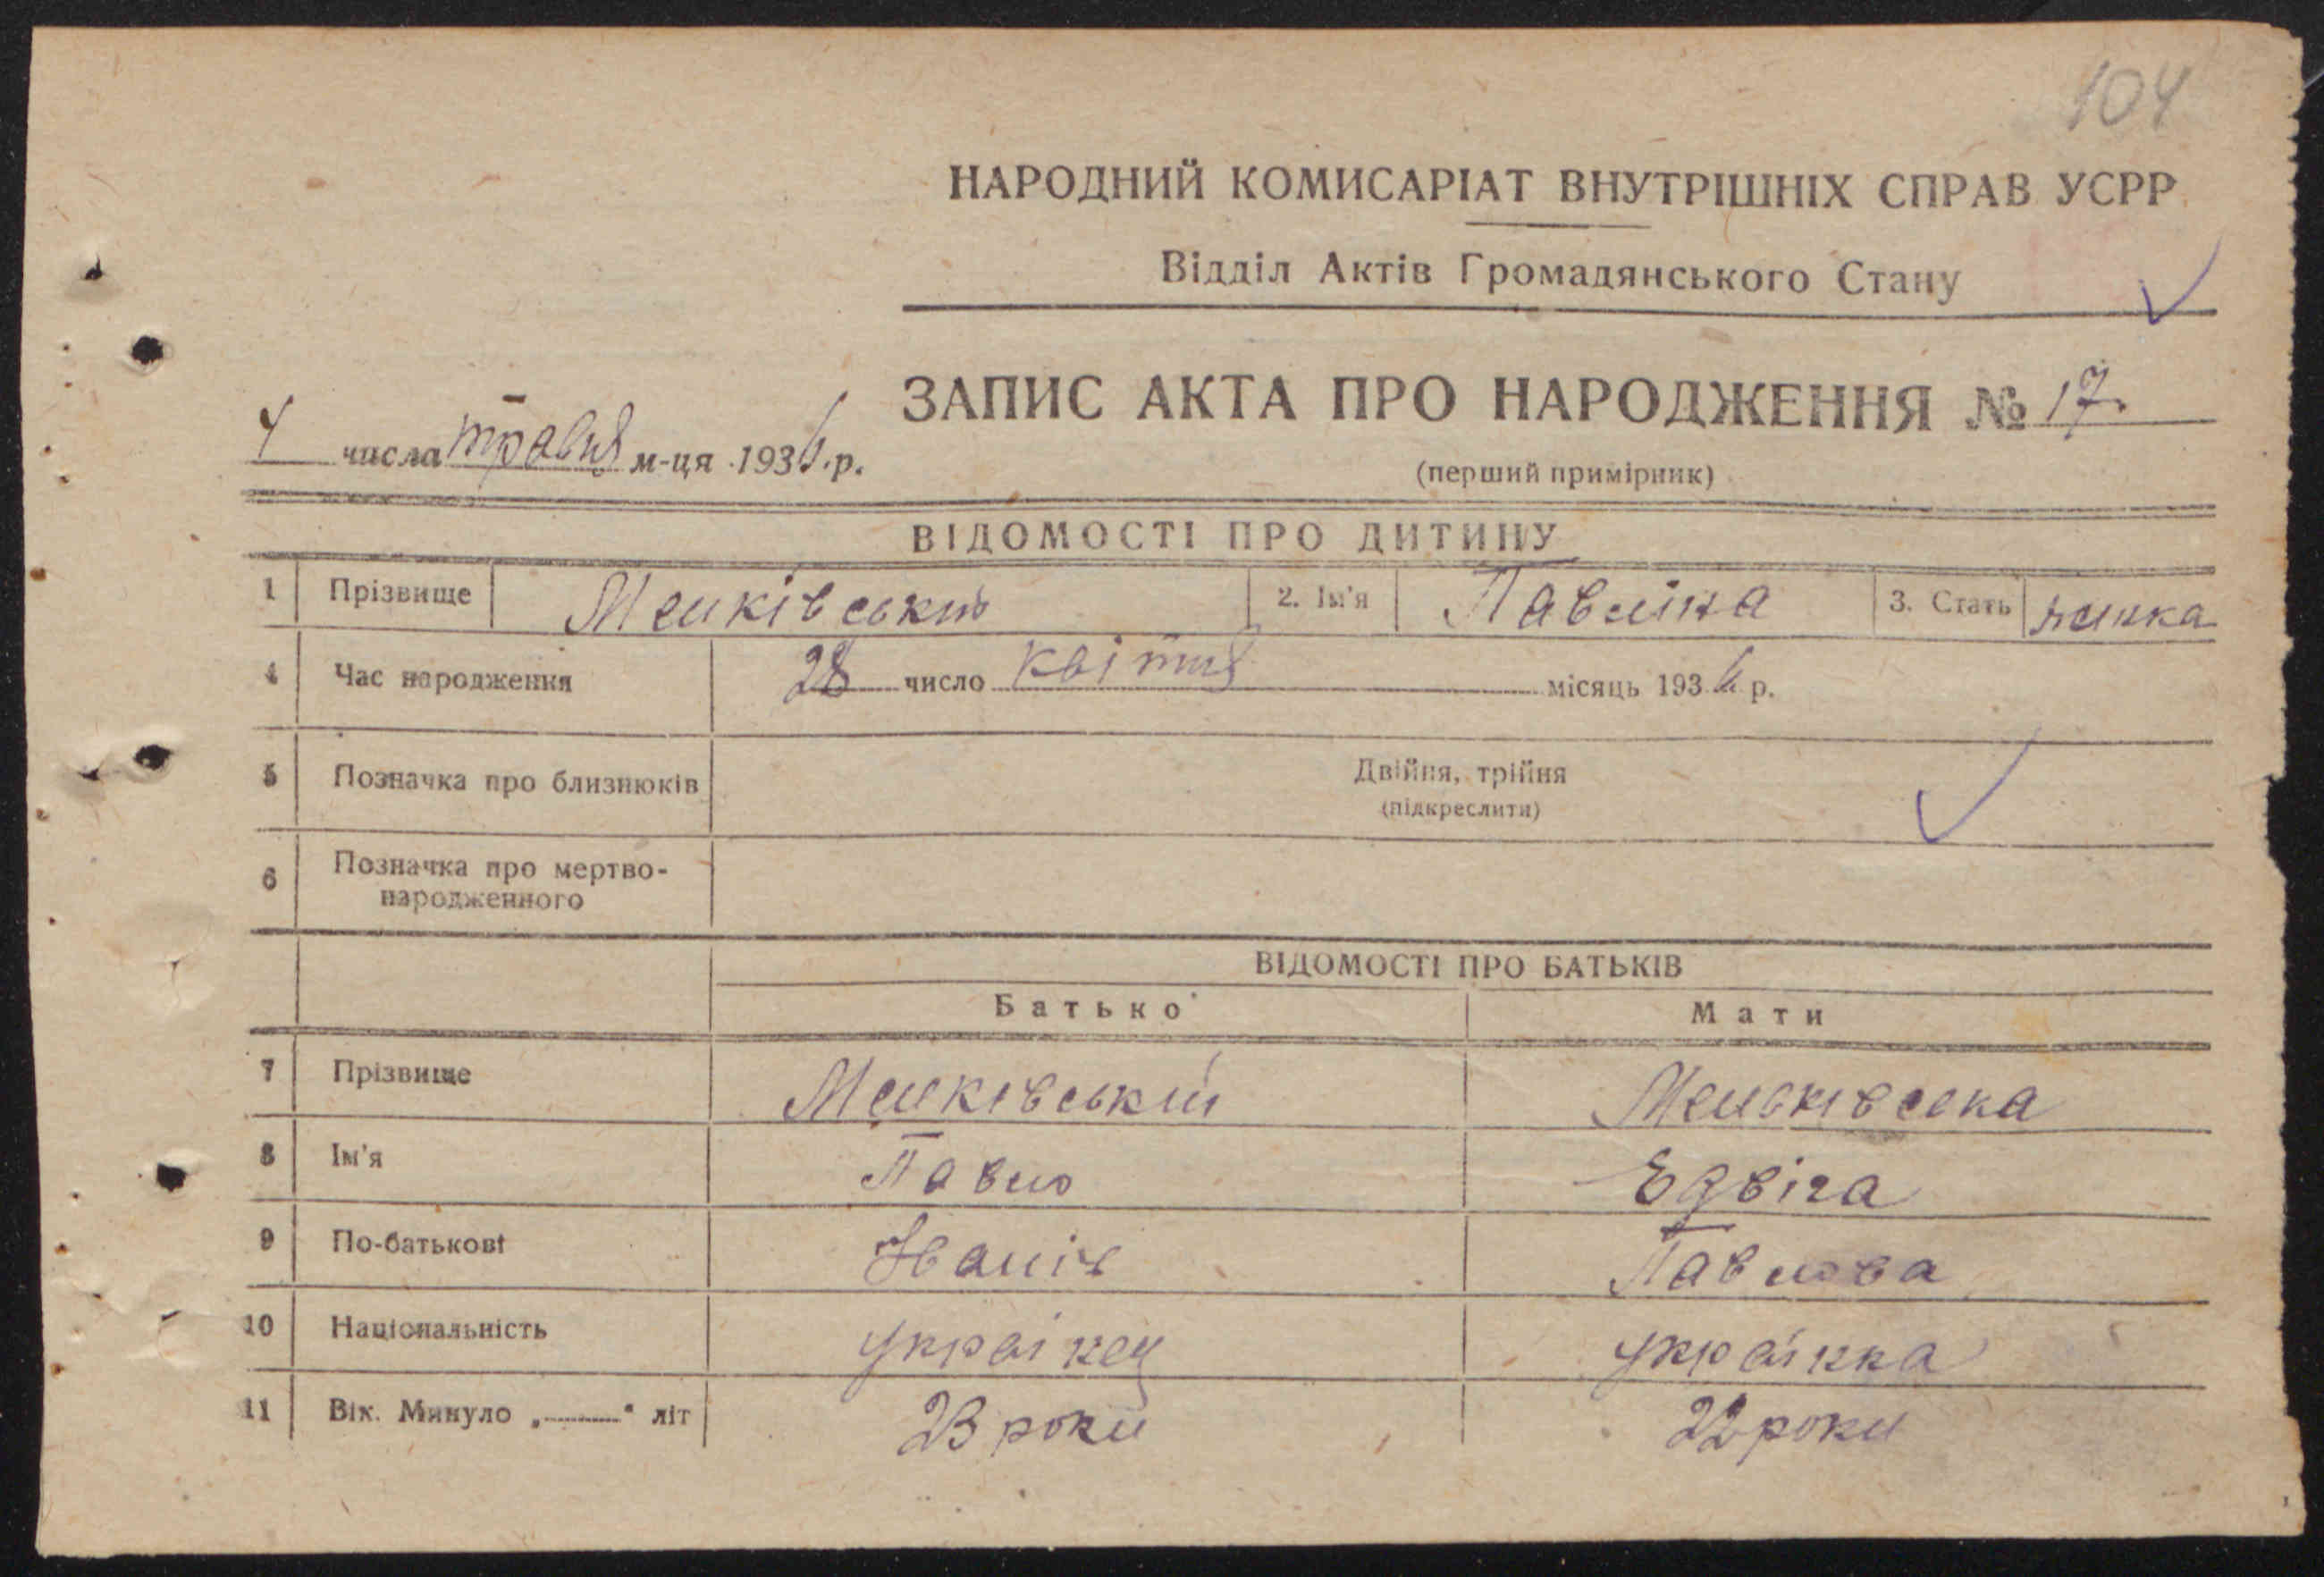 104
НАРОДНИЙ КОМИСАРІАТ ВНУТРІШНІХ СПРАВ УСРР
Відділ Актів Громадянського Стану
ЗАПИС АКТА ПРО НАРОДЖЕННЯ № 17
4 числа травня м-ця 1936 р.
(перший примірник)
ВІДОМОСТІ ПРО ДИТИНУ
1 Прізвище 2. Ім'я Павліна 3. Стать жінка
4 Час народження 28 число квітня місяць 1936 р.
5 Позначка про близнюків Двійня, трійня
(підкреслити)
6 Позначка про мертво-
народженного
ВІДОМОСТІ ПРО БАТЬКІВ
Батько Мати
7 Прізвище
8 Ім'я Павло Едвіга
9 По-батькові Іваніч Павлова
10 Національність українец українка
11 Вік. Минуло „ “ літ 23 роки 22 роки